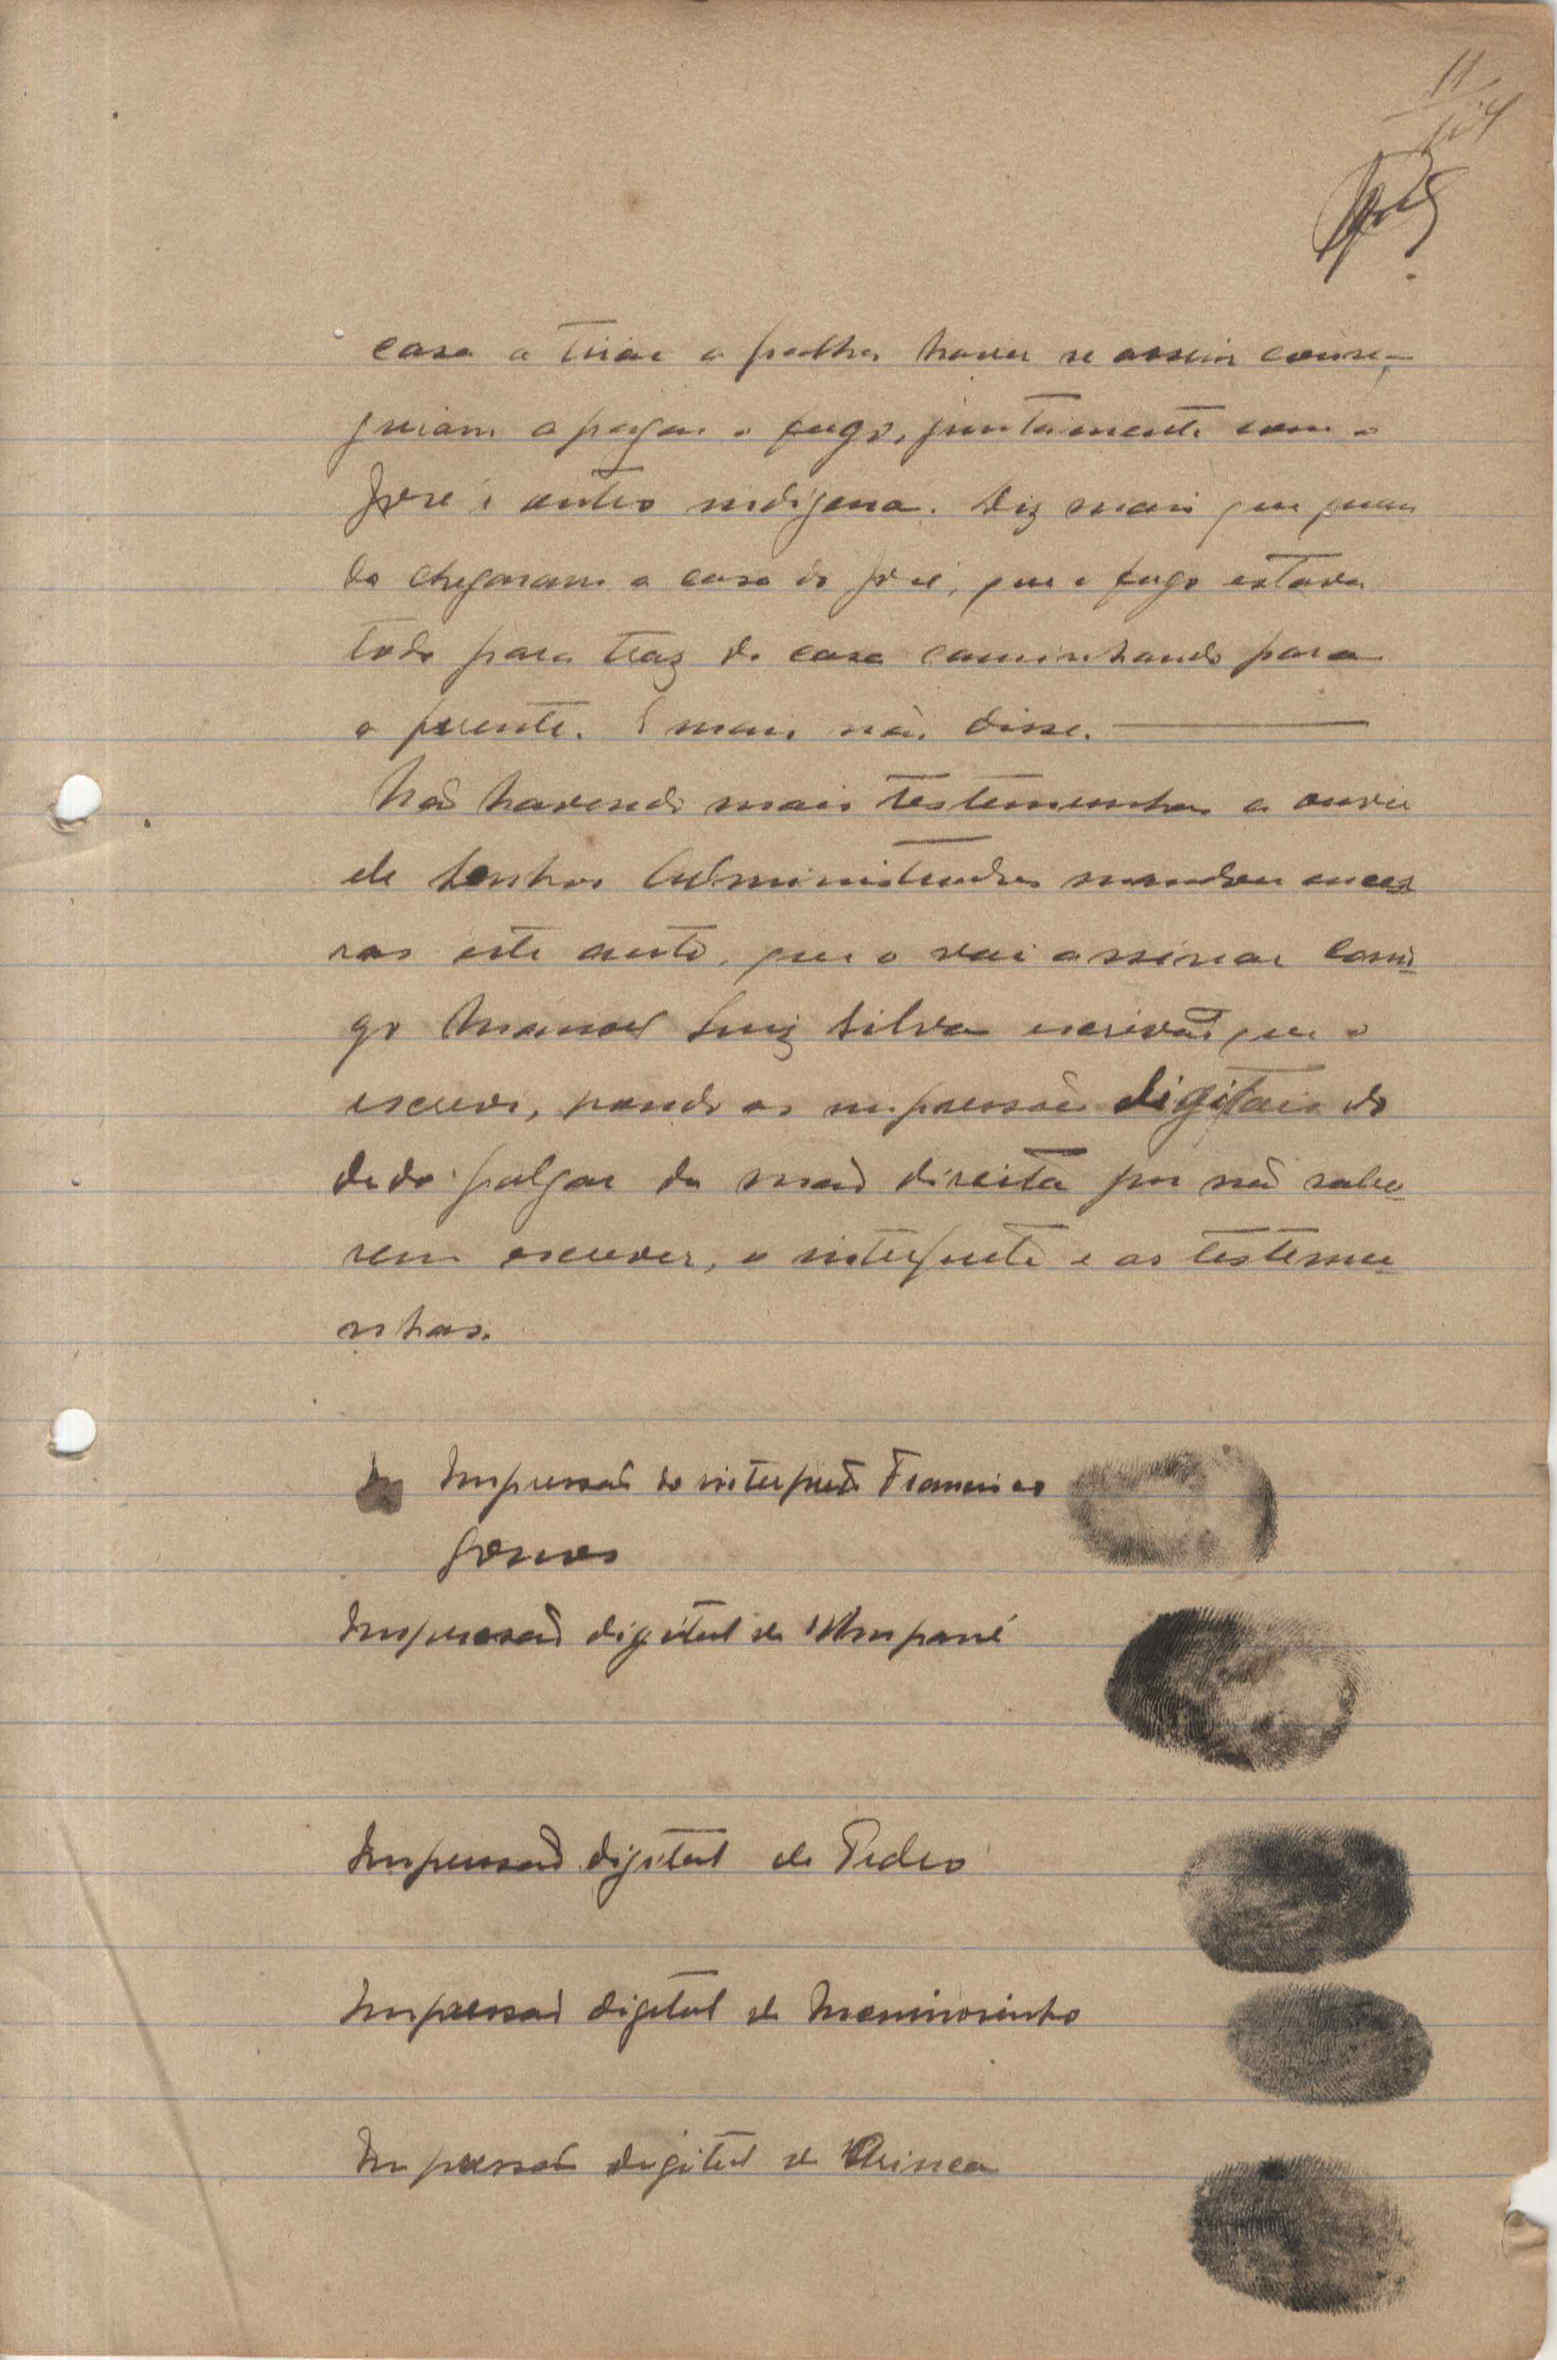 11
casa a tirar a palha haver se assim conse-
guiam apagar o fugo, juntamente com o
José e outro indigena. Diz mais que quan
do chegaram a casa do José, que o fugo estava
todo para traz da casa caminhando para
a frente. E mais não disse.
Não havendo mais testemunhas a ouvir
ele Senhor Administrador mandou encer
rar este auto, que o vai assinar comi-
go Manoel Luiz Silva escrivão que o
escrevi, pondo as impressões digitais do
dedo polgar da mão direita por não sabe-
rem escrever, o interprete e as testemu-
nhas.
Impressão do interprete Francisco
Gomes
Impressão digital de
Impressão digital de Pedro
Impressão digital de Meninosinho
Impressão digital de